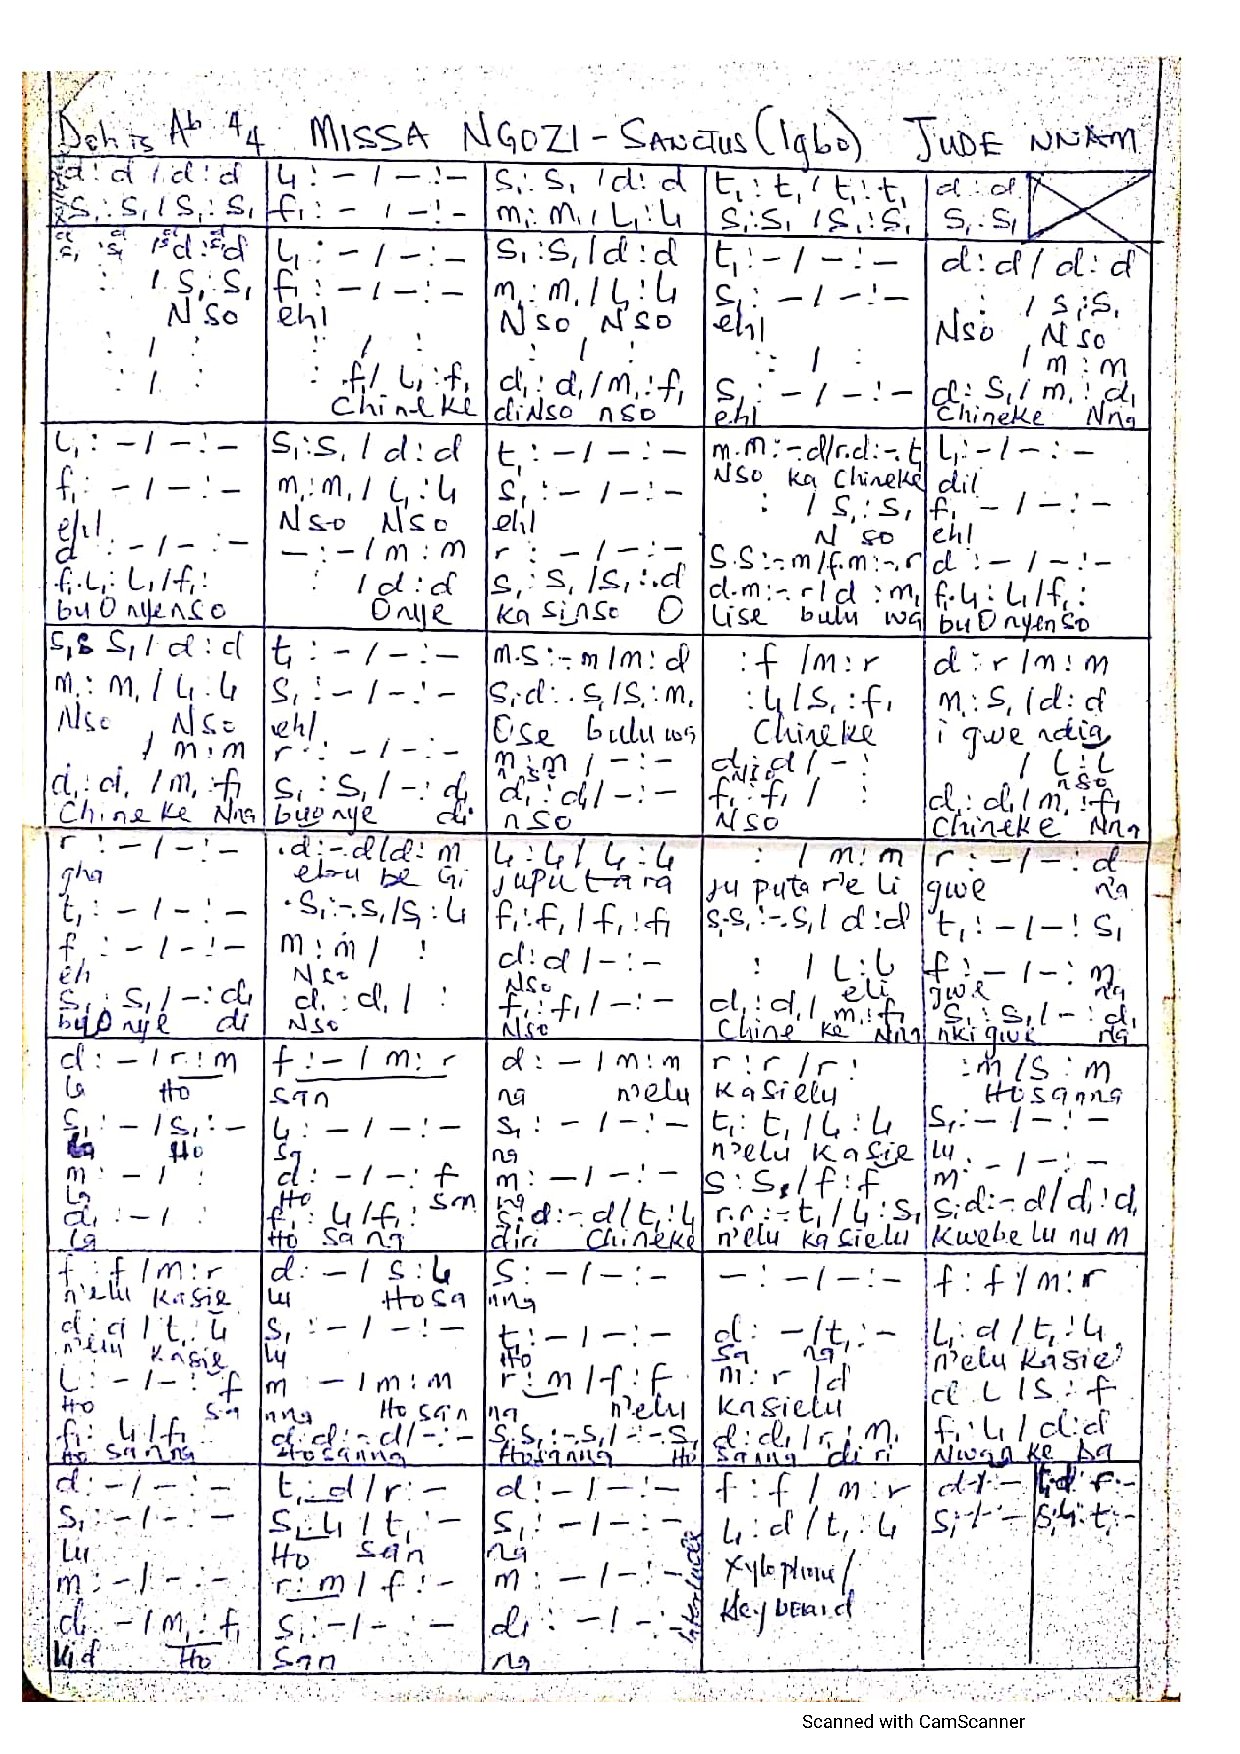 Doh is Ab 4/4 MISSA NGOZI - SANCTUS (Igbo) JUDE NNAM
d : d / d : d
S₁ : S₁ / S₁ : S₁
L₁ : – / – : –
f₁ : – / – : –
S₁ : S₁ / d : d
m₁ : m₁ / L₁ : L₁
t₁ : t₁ / t₁ : t₁
S₁ : S₁ / S₁ : S₁
d : d
S₁ : S₁
/ d : d
: / S₁ : S₁
Nso
: / :
: / :
L₁ : – / – : –
f₁ : – / – : –
eh!
: / :
: .f₁ / L₁ : f₁
Chineke
S₁ : S₁ / d : d
m₁ : m₁ / L₁ : L₁
Nso Nso
: / :
d₁ : d₁ / m₁ : f₁
di Nso nso
t₁ : – / – : –
S₁ : – / – : –
eh!
: / :
S₁ : – / – : –
eh!
d : d / d : d
: / S₁ : S₁
Nso , Nso
/ m : m
d : S₁ / m₁ : d₁
Chineke Nna
L₁ : – / – : –
f₁ : – / – : –
eh!
d : – / – : –
f₁ . L₁ : L₁ / f₁ :
bu Onyenso
S₁ : S₁ / d : d
m₁ : m₁ / L₁ : L₁
Nso Nso
– : – / m : m
: / d : d
Onye
t₁ : – / – : –
S₁ : – / – : –
eh!
r : – / – : –
S₁ : S₁ / S₁ : . d
ka sinso O
m . m : – . d / r . d : – . t₁
Nso ka Chineke
: / S₁ : S₁
Nso
S . S : – . m / f . m : – . r
d . m : – . r / d : m₁
lise bulu wa
L₁ : – / – : –
di!
f₁ : – / – : –
eh!
d : – / – : –
f₁ . L₁ : L₁ / f₁ :
bu Onyenso
S₁ S₁ / d : d
m₁ : m₁ / L₁ : L₁
Nso , Nso
/ m : m
d₁ : d₁ / m₁ : f₁
Chineke Nna
t₁ : – / – : –
S₁ : – / – : –
eh!
r : – / – : –
S₁ : S₁ / – : d₁
buonye di
m . S : – m / m : d
S₁ . d : . S₁ / S₁ : m₁
Ose bulu wa
m : m / – : –
nso
d₁ : d₁ / – : –
nso
: f / m : r
: L₁ / S₁ : f₁
Chineke
d : d / – :
Nso
f₁ : f₁ / :
Nso
d : r / m : m
m₁ : S₁ / d : d
i gwe ndia
/ L : L
nso
d₁ : d₁ / m₁ : f₁
Chineke Nna
r : – / – : –
gha
t₁ : – / – : –
f : – / – : –
eh
S₁ : S₁ / – : d₁
bu Onye di
. d : – . d / d : m
ebu be Gi
. S₁ : – . S₁ / S₁ : L₁
m : m / :
Nso
d₁ : d₁ / :
Nso
L₁ : L₁ / L₁ : L₁
juputara
f₁ : f₁ / f₁ : f₁
d : d / – : –
Nso
f₁ : f₁ / – : –
Nso
: / m : m
ju puta r'e li
S₁ . S₁ : – . S₁ / d : d
: / L : L
eli
d₁ : d₁ / m₁ : f₁
Chine ke Nna
r : – / – : d
gwe n'a
t₁ : – / – : S₁
f : – / – : m
igwe na
S₁ : S₁ / – : d₁
nki gwe na
d : – / r : m
la Ho
S₁ : – / S₁ : –
la Ho
m : – / :
la
d₁ : – / :
la
f : – / m : r
san
L₁ : – / – : –
sa
d : – / – : f
Ho san
f₁ : L₁ / f₁ : –
Ho sana
d : – / m : m
na n'elu
S₁ : – / – : –
na
m : – / – : –
na
S₁ . d : – . d / t₁ : L₁
diri Chineke
r : r / r :
kasielu
t₁ : t₁ / L₁ : L₁
n'elu kasie
S : S / f : f
r . r : – t₁ / L₁ : S₁
n'elu kasielu
: m / S : m
Hosanna
S₁ : – / – : –
lu
m : – / – : –
S₁ . d : – d / d₁ : d₁
kwebe lu nu M
f : f / m : r
n'elu kasie
d : d / t₁ : L₁
n'elu kasie
L : – / – : f
Ho sa
f₁ : L₁ / f₁
Ho sanna
d : – / S : L
lu Hosa
S₁ : – / – : –
lu
m – / m : m
nna Hosan
d . d : – d / – : –
Hosanna
S : – / – : –
nna
t₁ : – / – : –
Ho
r : m / f : f
na n'elu
S₁ . S₁ : – . S₁ / – : – . S₁
Hosanna Ho
– : – / – : –
d : – / t₁ : –
sa na
m : r / d
kasielu
d₁ : d₁ / r₁ : m₁
sanna di ri
f : f / m : r
L₁ : d / t₁ : L₁
n'elu kasie
d L / S : f
f₁ : L₁ / d : d
Nwanke ba
d : – / – : –
S₁ : – / – : –
lu
m : – / – : –
d₁ – / m₁ : f₁
Ho
t₁ : d / r : –
S₁ : L₁ / t₁ : –
Ho san
r : m / f : –
S₁ : – / – : –
San
d : – / – : –
S₁ : – / – : –
na
m : – / – : –
d₁ : – / – : –
na
Interlude
f : f / m : r
L₁ : d / t₁ : L₁
Xylophone/
Keyboard
Scanned with CamScanner